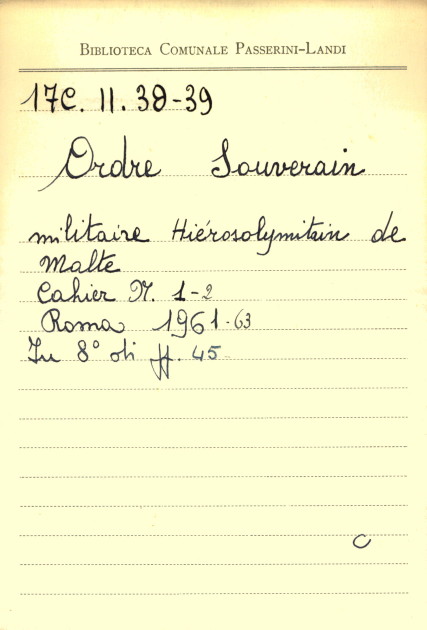 BIBLIOTECA COMUNALE PASSERINI-LANDI
17C. II. 38-39
Ordre Souverain
militaire Hiérosolymitain de
Malte
Cahier N. 1-2
Roma 1961-63
In 8° di ff. 45
C